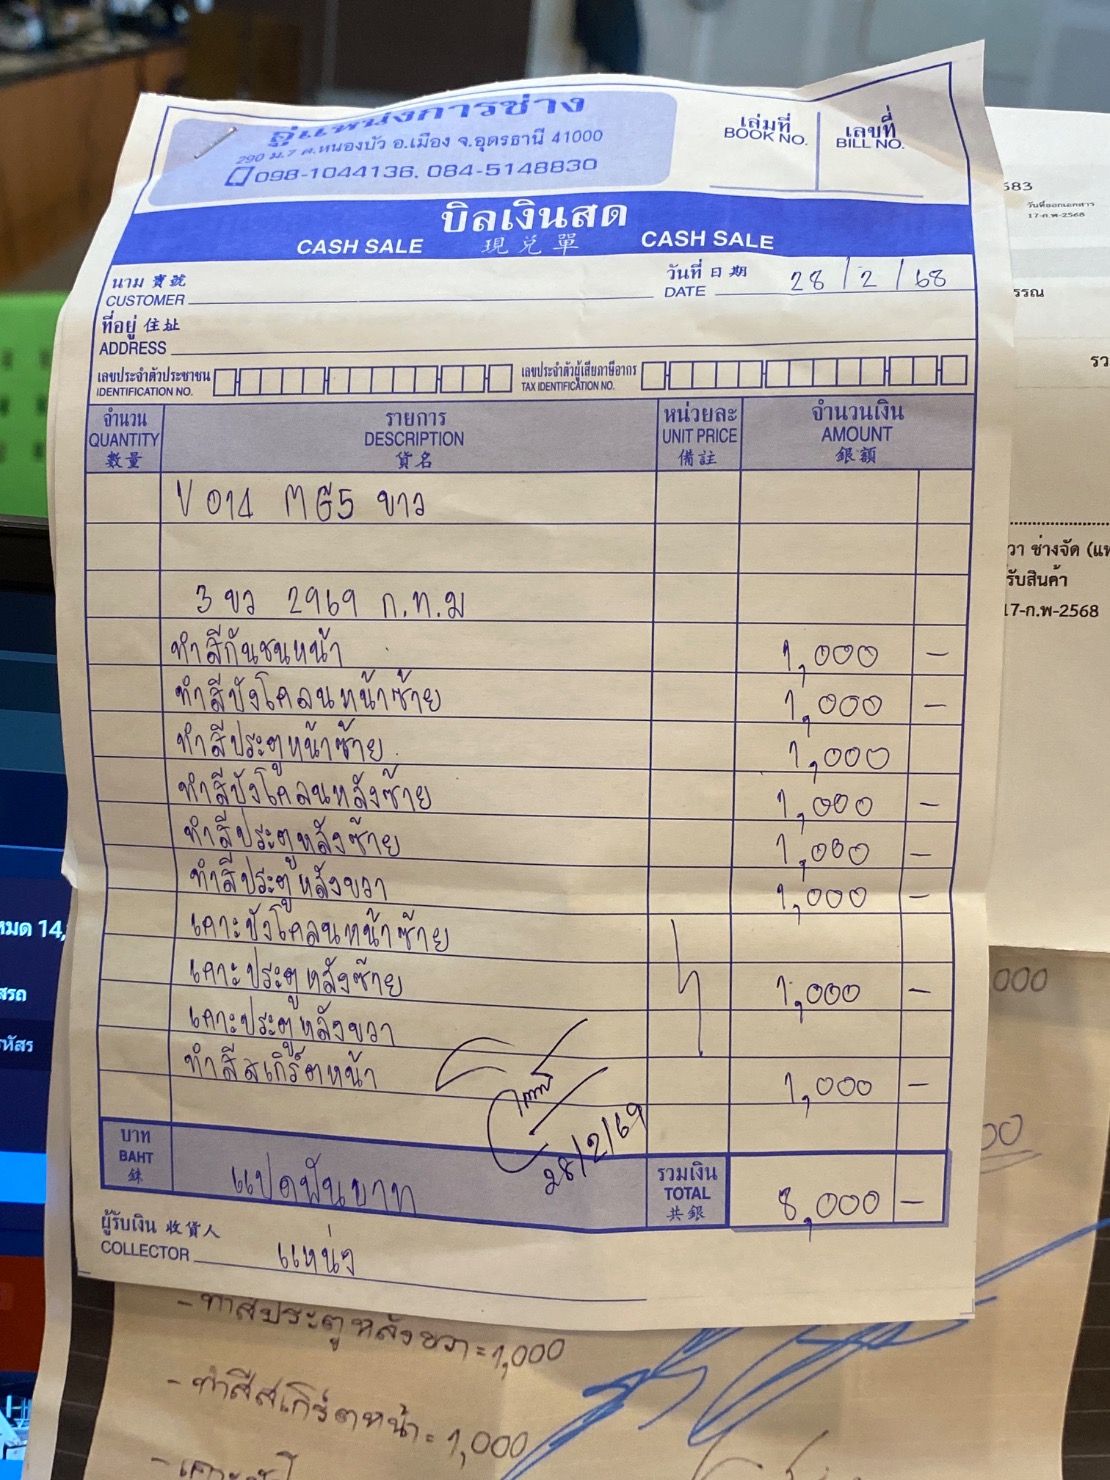 อู่แหน่งการช่าง
290 ม.7 ต.หนองบัว อ.เมือง จ.อุดรธานี 41000
098-1044136, 084-5148830
เล่มที่
BOOK NO.
เลขที่
BILL NO.
บิลเงินสด
CASH SALE 現兌單 CASH SALE
นาม 寶號
CUSTOMER
วันที่ 日期
DATE 28/2/68
ที่อยู่ 住址
ADDRESS
เลขประจำตัวประชาชน
IDENTIFICATION NO.
เลขประจำตัวผู้เสียภาษีอากร
TAX IDENTIFICATION NO.
จำนวน
QUANTITY
數量
รายการ
DESCRIPTION
貨名
หน่วยละ
UNIT PRICE
備註
จำนวนเงิน
AMOUNT
銀額
V 014 MG5 ขาว
3 ขว 2969 ก.ท.ม
ทำสีกันชนหน้า 1,000 -
ทำสีบังโคลนหน้าซ้าย 1,000 -
ทำสีประตูหน้าซ้าย 1,000
ทำสีบังโคลนหลังซ้าย 1,000 -
ทำสีประตูหลังซ้าย 1,000 -
ทำสีประตูหลังขวา 1,000 -
เคาะบังโคลนหน้าซ้าย
เคาะประตูหลังซ้าย 1,000 -
เคาะประตูหลังขวา
ทำสีสเกิร์ตหน้า 1,000 -
28/2/69
บาท
BAHT
銖
แปดพันบาท
รวมเงิน
TOTAL
共銀
8,000 -
ผู้รับเงิน 收貨人
COLLECTOR แหน่ง
583
วันที่ออกเอกสาร
17-ก.พ-2568
รรณ
รว
วา ช่างจัด (แห
รับสินค้า
17-ก.พ-2568
หมด 14,
สรถ
รหัสร
000
00
- ทำสีประตูหลังขวา = 1,000
- ทำสีสเกิร์ตหน้า = 1,000